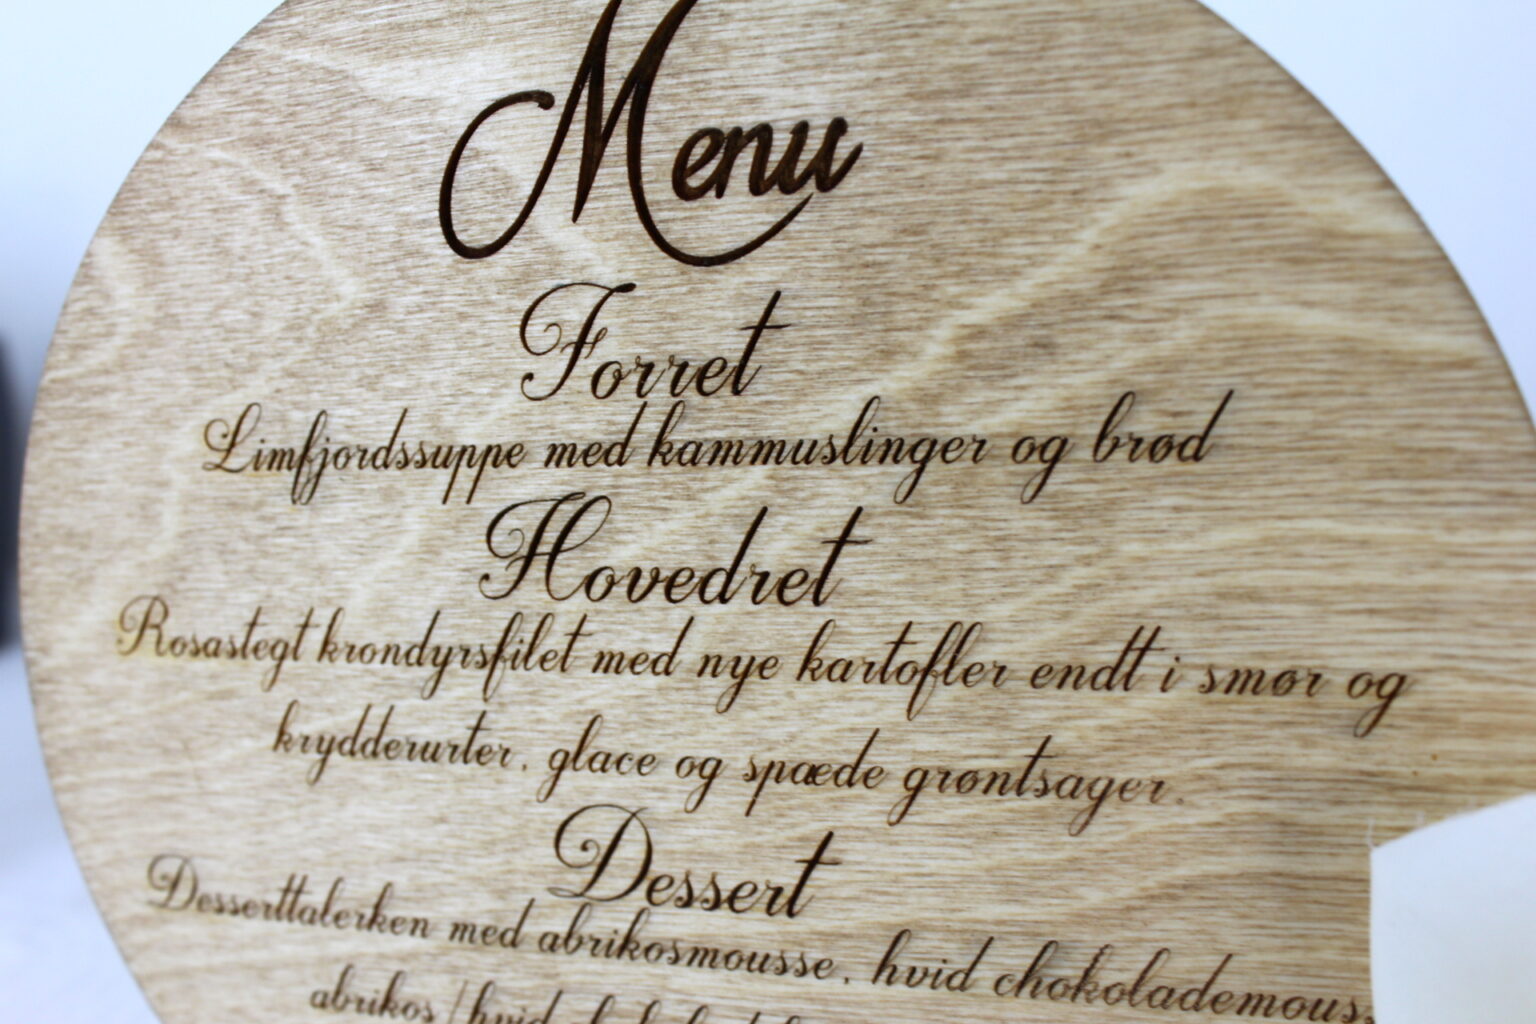 Menu
Forret
Limfjordssuppe med kammuslinger og brød
Hovedret
Rosastegt krondyrsfilet med nye kartofler endt i smør og
krydderurter, glace og spæde grøntsager.
Dessert
Desserttalerken med abrikosmousse, hvid chokolademous
abrikos/hvid